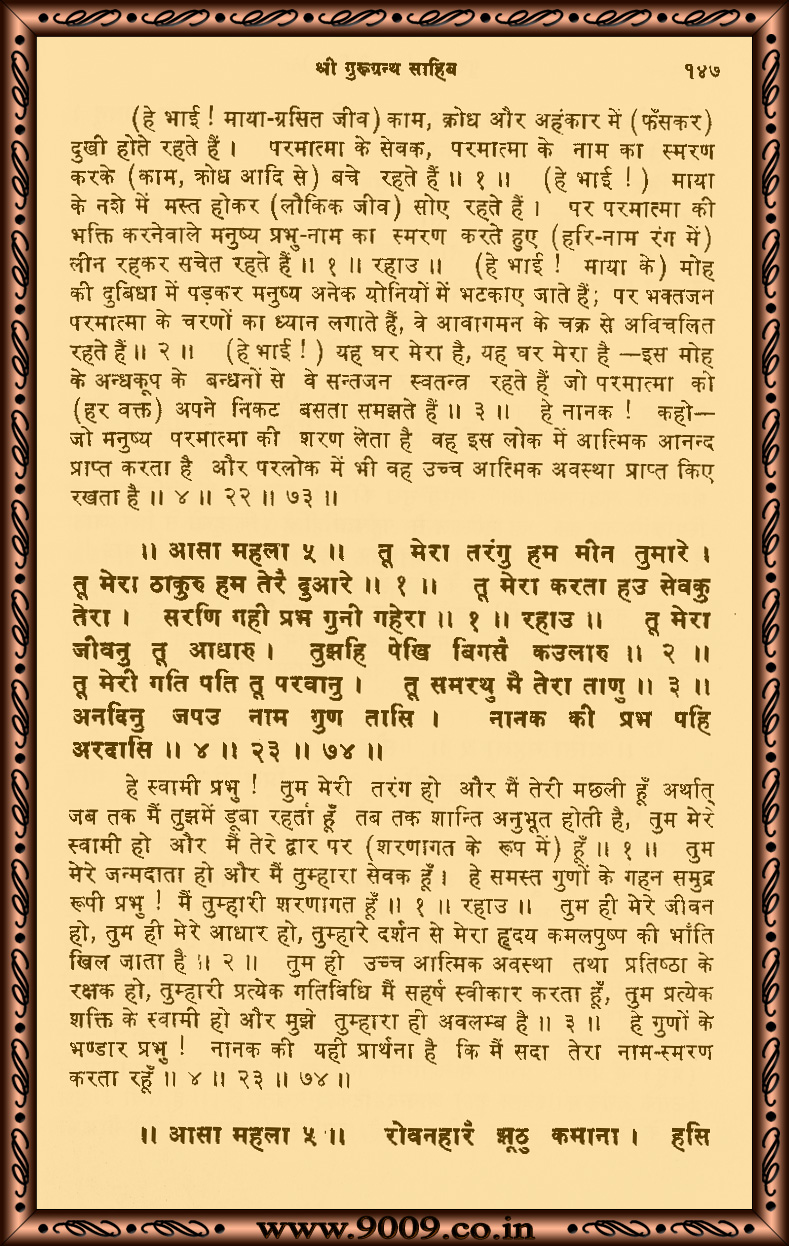 श्री गुरूग्रन्थ साहिब १४७
(हे भाई ! माया-ग्रसित जीव) काम, क्रोध और अहंकार में (फँसकर)
दुखी होते रहते हैं । परमात्मा के सेवक, परमात्मा के नाम का स्मरण
करके (काम, क्रोध आदि से) बचे रहते हैं ॥ १ ॥ (हे भाई ! ) माया
के नशे में मस्त होकर (लौकिक जीव) सोए रहते हैं । पर परमात्मा की
भक्ति करनेवाले मनुष्य प्रभु-नाम का स्मरण करते हुए (हरि-नाम रंग में)
लीन रहकर सचेत रहते हैं ॥ १ ॥ रहाउ ॥ (हे भाई ! माया के) मोह
की दुबिधा में पड़कर मनुष्य अनेक योनियों में भटकाए जाते हैं; पर भक्तजन
परमात्मा के चरणों का ध्यान लगाते हैं, वे आवागमन के चक्र से अविचलित
रहते हैं ॥ २ ॥ (हे भाई ! ) यह घर मेरा है, यह घर मेरा है —इस मोह
के अन्धकूप के बन्धनों से वे सन्तजन स्वतन्त्र रहते हैं जो परमात्मा को
(हर वक्त) अपने निकट बसता समझते हैं ॥ ३ ॥ हे नानक ! कहो—
जो मनुष्य परमात्मा की शरण लेता है वह इस लोक में आत्मिक आनन्द
प्राप्त करता है और परलोक में भी वह उच्च आत्मिक अवस्था प्राप्त किए
रखता है ॥ ४ ॥ २२ ॥ ७३ ॥
॥ आसा महला ५ ॥ तू मेरा तरंगु हम मीन तुमारे ।
तू मेरा ठाकुरु हम तेरै दुआरे ॥ १ ॥ तू मेरा करता हउ सेवकु
तेरा । सरणि गही प्रभ गुनी गहेरा ॥ १ ॥ रहाउ ॥ तू मेरा
जीवनु तू आधारु । तुझहि पेखि बिगसै कउलारु ॥ २ ॥
तू मेरी गति पति तू परवानु । तू समरथु मै तेरा ताणु ॥ ३ ॥
अनदिनु जपउ नाम गुण तासि । नानक की प्रभ पहि
अरदासि ॥ ४ ॥ २३ ॥ ७४ ॥
हे स्वामी प्रभु ! तुम मेरी तरंग हो और मैं तेरी मछली हूँ अर्थात्
जब तक मैं तुझमें डूबा रहता हूँ तब तक शान्ति अनुभूत होती है, तुम मेरे
स्वामी हो और मैं तेरे द्वार पर (शरणागत के रूप में) हूँ ॥ १ ॥ तुम
मेरे जन्मदाता हो और मैं तुम्हारा सेवक हूँ । हे समस्त गुणों के गहन समुद्र
रूपी प्रभु ! मैं तुम्हारी शरणागत हूँ ॥ १ ॥ रहाउ ॥ तुम ही मेरे जीवन
हो, तुम ही मेरे आधार हो, तुम्हारे दर्शन से मेरा हृदय कमलपुष्प की भाँति
खिल जाता है ॥ २ ॥ तुम ही उच्च आत्मिक अवस्था तथा प्रतिष्ठा के
रक्षक हो, तुम्हारी प्रत्येक गतिविधि मैं सहर्ष स्वीकार करता हूँ, तुम प्रत्येक
शक्ति के स्वामी हो और मुझे तुम्हारा ही अवलम्ब है ॥ ३ ॥ हे गुणों के
भण्डार प्रभु ! नानक की यही प्रार्थना है कि मैं सदा तेरा नाम-स्मरण
करता रहूँ ॥ ४ ॥ २३ ॥ ७४ ॥
॥ आसा महला ५ ॥ रोवनहारै झूठु कमाना । हसि
www.9009.co.in